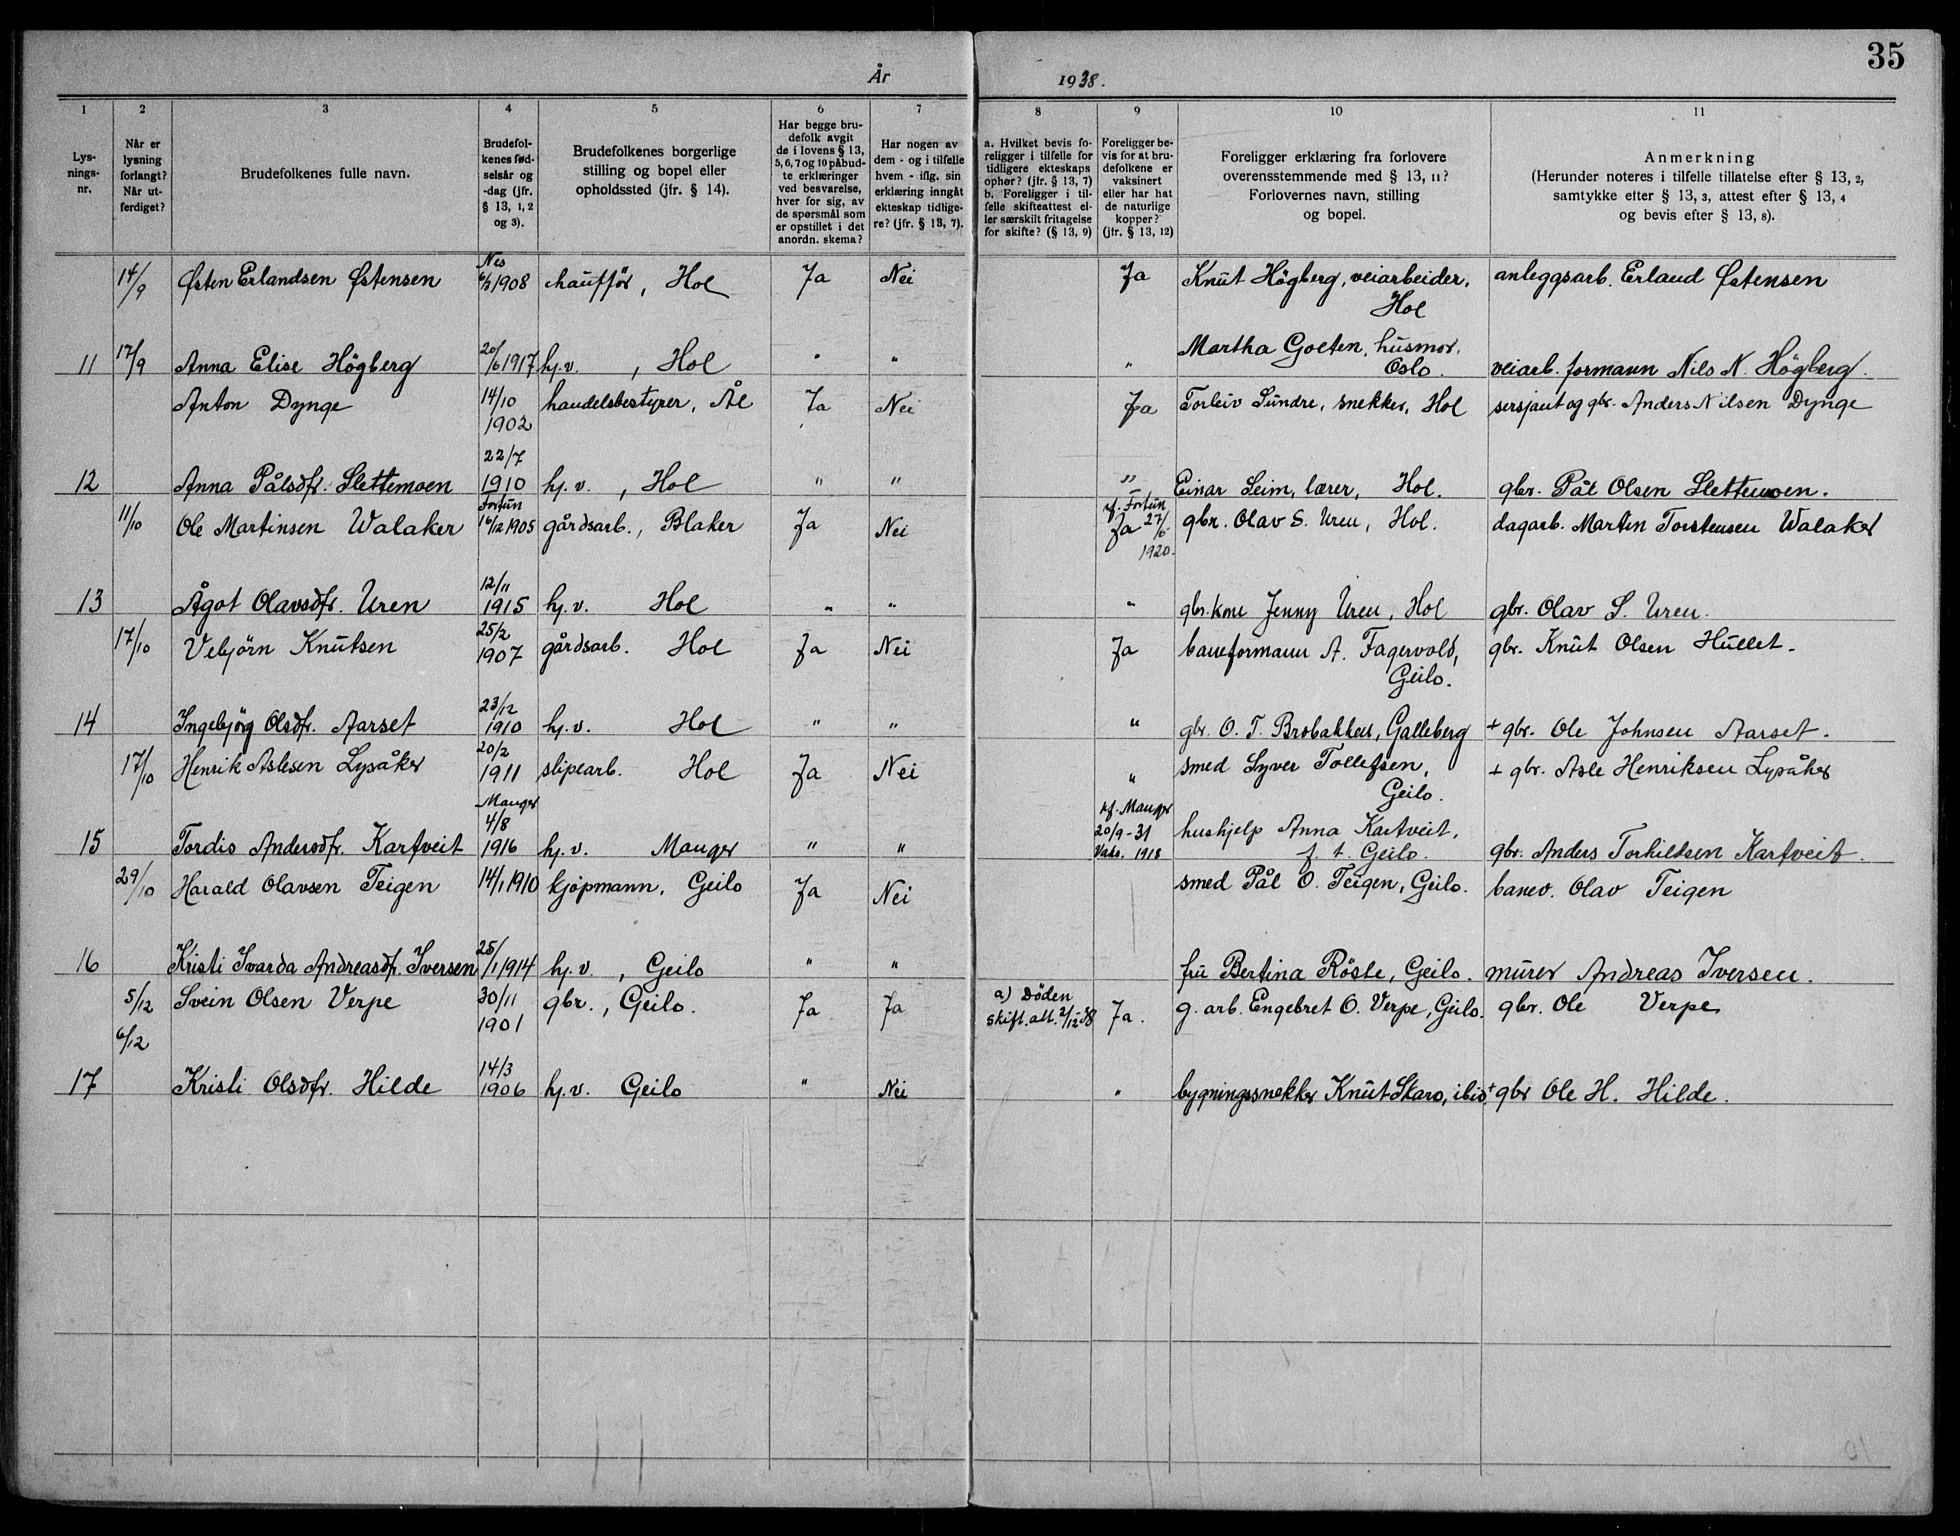 35
År 1938.
1 2 3 4 5 6 7 8 9 10 11
Lys-
nings-
nr.
Når er
lysning
forlangt?
Når ut-
ferdiget?
Brudefolkenes fulle navn.
Brudefol-
kenes fød-
selsår og
-dag (jfr.
§ 13, 1, 2
og 3).
Brudefolkenes borgerlige
stilling og bopel eller
opholdssted (jfr. § 14).
Har begge bru-
defolk avgit
de i lovens § 13,
5, 6, 7 og 10 påbud-
te erklæringer
ved besvarelse,
hver for sig, av
de spørsmål som
er opstillet i det
anordn. skema?
Har nogen av
dem - og i tilfelle
hvem - iflg. sin
erklæring inngåt
ekteskap tidlige-
re? (jfr. § 13, 7).
a. Hvilket bevis fo-
religger i tilfelle for
tidligere ekteskaps
ophør? (jfr. § 13, 7)
b. Foreligger i til-
felle skifteattest el-
ler særskilt fritagelse
for skifte? (§ 13, 9)
Foreligger be-
vis for at bru-
defolkene er
vaksinert
eller har hat
de naturlige
kopper?
(jfr. § 13, 12)
Foreligger erklæring fra forlovere
overensstemmende med § 13, 11?
Forlovernes navn, stilling
og bopel.
Anmerkning
(Herunder noteres i tilfelle tillatelse efter § 13, 2,
samtykke efter § 13, 3, attest efter § 13, 4
og bevis efter § 13, 8).
Nes
14/9 Østen Erlandsen Østensen 1908 chauffør, Hol Ja Nei Ja Knut Högberg, veiarbeider, anleggsarb. Erland Østensen
Hol
Martha Goeten, husmor,
11 17/9 Anna Elise Högberg 20/6 1917 hj.v. , Hol " " " Oslo. veiarb. formann Nils N. Högberg.
Anton Dynge 14/10 handelsbestyrer, Ål Ja Nei Ja Torleiv Sundre, snekker, Hol sersjant og gbr. Anders Nilsen Dynge
1902
22/7
12 Anna Pålsdtr. Slettemoen 1910 hj.v. , Hol " " " Einar Seim, lærer, Hol. gbr. Pål Olsen Slettemoen.
Fortun Fortun
11/10 Ole Martinsen Walaker 16/12 1905 gårdsarb., Blaker Ja Nei Ja gbr. Olav S. Uren, Hol. dagarb. Martin Torstensen Walaker
1920.
12/11
13 Ågot Olavsdtr. Uren 1915 hj.v. Hol " " " gbr.kone Jenny Uren, Hol gbr. Olav S. Uren.
25/2
17/10 Vebjörn Knutsen 1907 gårdsarb. Hol Ja Nei Ja baneformann A. Fagervold, gbr. Knut Olsen Hullet.
Geilo.
23/12
14 Ingebjörg Olsdtr. Aarset 1910 hj.v. Hol " " " gbr. O. T. Brobakken, Galleberg + gbr. Ole Johnsen Aarset.
20/2
17/10 Henrik Aslesen Lysåker 1911 slipearb. Hol Ja Nei " smed Syver Tollefsen, + gbr. Asle Henriksen Lysåker
Geilo.
Manger kf. Manger
4/8 20/9-31 hushjelp Anna Kartveit,
15 Tordis Andersdtr. Kartveit 1916 hj.v. Manger " " Vaks. 1918 f. t. Geilo. gbr. Anders Torkildsen Kartveit.
29/10 Harald Olavsen Teigen 14/1 1910 kjöpmann, Geilo Ja Nei smed Pål O. Teigen, Geilo. banev. Olav Teigen
16 Kristi Ivarda Andreasdtr. Iversen 25/1 1914 hj.v. , Geilo " " fru Bertina Röste, Geilo. murer Andreas Iversen.
5/12 Svein Olsen Verpe 30/11 gbr., Geilo. Ja Ja a) Döden Ja. g. arb. Engebret O. Verpe, Geilo. gbr. Ole Verpe
1901 skift.att. 2/12 38
6/12
14/3
17 Kristi Olsdtr. Hilde 1906 hj.v. Geilo " Nei " bygningssnekker Knut Skaro, ibid. + gbr Ole H. Hilde.